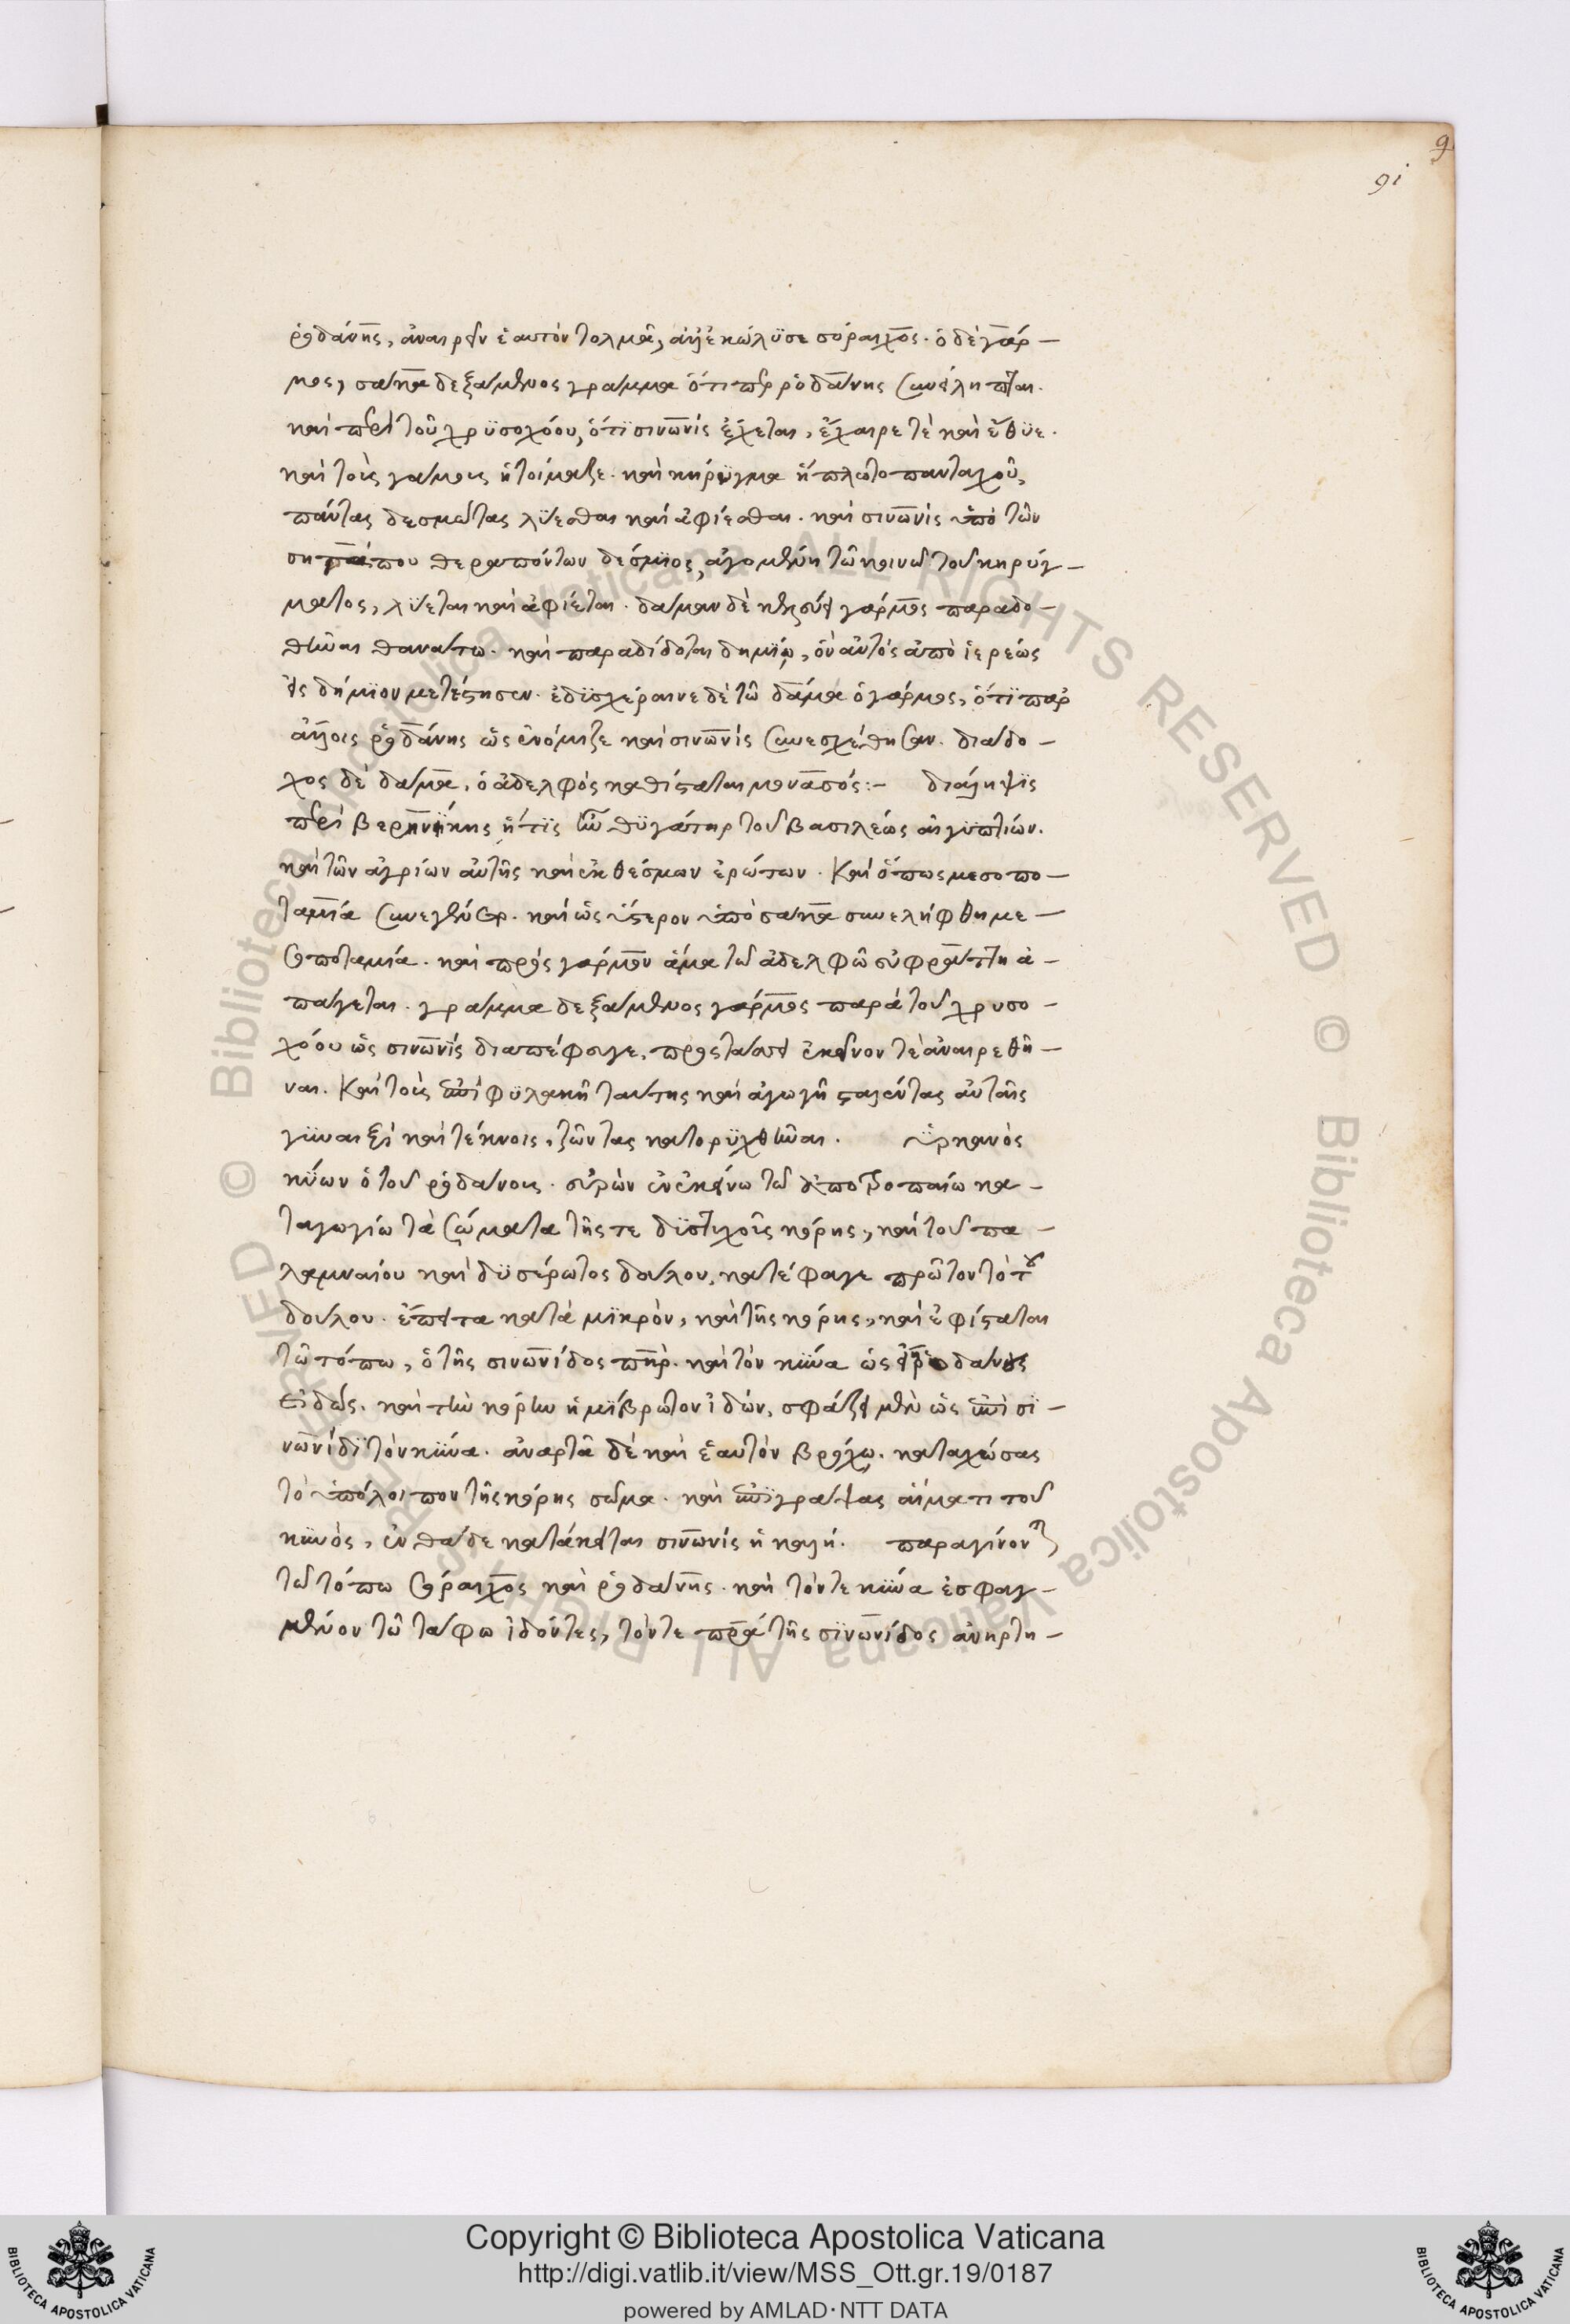 9
91
ῥοδάνης, ἀναιρεῖν ἑαυτὸν τολμᾷ, ἀλλ' ἐκώλϋσε σόραιχος. ὁ δὲ γάρ-
μος, σάκα δεξάμενος γράμμα ὅτι περ ῥοδάνης συνείληπται.
καὶ περὶ τοῦ χρϋσοχόου, ὅτϊ σινωνὶς ἔχεται, ἔχαιρε τὲ καὶ ἔθϋε.
καὶ τοὺς γάμους ἡτοίμαζε. καὶ κηρϋγμα ἥπλωτο πανταχοῦ,
πάντας δεσμώτας λϋεσθαι καὶ ἀφίεσθαι. καὶ σινωνὶς ὑπὸ τῶν
σητράπου θεραπόντων δέσμϊος, ἀγομένη τῶ κοινῶ τοῦ κηρύγ-
ματος, λϋεται καὶ ἀφίεται. δάμαν δὲ κελεύει γάρμος παραδο-
θῆναι θανάτω. καὶ παραδίδοται δημίῳ, ὃν αὐτὸς ἀπὸ ἱερέως
εἰς δήμϊον μετέστησεν. ἐδϋσχέραινε δὲ τῶ δάμα ὁ γάρμος, ὅτϊ παρ'
ἄλλοις ῥοδάνης ὡς ἐνόμιζε καὶ σινωνὶς συνεσχέθησαν. διάδο-
χος δὲ δάμα, ὁ ἀδελφὸς καθίσταται μονασός:- διάληψϊς
περὶ βερηνϊκης ἥτϊς ἦν θϋγάτηρ τοῦ βασιλέως αἰγϋπτίων.
καὶ τῶν ἀγρίων αὐτῆς καὶ ἐκθέσμων ἐρώτων. Καὶ ὅπως μεσοπο-
ταμία συνεγένετο. καὶ ὡς ὕστερον ὑπὸ σάκα συνελήφθη με-
σοποταμία. καὶ πρὸς γάρμον ἅμα τῶ ἀδελφῶ εὐφράτη ἀ-
πάγεται. γράμμα δεξάμενος γάρμος παρὰ τοῦ χρυσο-
χόου ὡς σινωνὶς διαπέφευγε, προστάσσει ἐκεῖνον τὲ ἀναιρεθῆ-
ναι. Καὶ τοὺς ἐπὶ φϋλακῆ ταύτης καὶ ἀγωγῆ σταλέντας αὐταῖς
γϋναιξὶ καὶ τέκνοις, ζῶντας κατορϋχθῆναι. Ϋρκανὸς
κϋων ὁ τοῦ ῥοδάνους. εὑρὼν ἐν ἐκείνω τῶ ἀποτροπαίω κα-
ταγωγίω τὰ σώματα τῆς τε δϋστϋχοῦς κόρης, καὶ τοῦ πα-
λαμναίου καὶ δϋσέρωτος δούλου, κατέφαγε πρῶτον τὸ τοῦ
δούλου. ἔπειτα κατὰ μϊκρὸν, καὶ τῆς κόρης, καὶ ἐφίσταται
τῶ τόπω, ὁ τῆς σινωνίδος πατήρ. καὶ τὸν κϋνα ὡς εἴη ῥοδάνους
εἰδώς. καὶ τὴν κόρην ἡμϊβρωτον ἰδὼν, σφάζει μὲν ὡς ἐπὶ σϊ-
νωνίδϊ τὸν κϋνα. ἀναρτᾶ δὲ καὶ ἑαυτὸν βρόχῳ. καταχώσας
τὸ ὑπόλοιπον τῆς κόρης σῶμα. καὶ ἐπϊγράψας αἵματι τοῦ
κϋνὸς, ἐνθάδε κατάκειται σινωνὶς ἡ καλή. παραγίνονται
τῶ τόπω σόραιχος καὶ ῥοδάνης. καὶ τόντε κϋνα ἐσφαγ-
μένον τῶ τάφω ἰδόντες, τόντε πατέρα τῆς σϊνωνίδος ἀνηρτη-
Copyright © Biblioteca Apostolica Vaticana
http://digi.vatlib.it/view/MSS_Ott.gr.19/0187
powered by AMLAD·NTT DATA
BIBLIOTECA APOSTOLICA VATICANA
BIBLIOTECA APOSTOLICA VATICANA
© Biblioteca Apostolica Vaticana ALL RIGHTS RESERVED © Biblioteca Apostolica Vaticana ALL RIGHTS RESERVED